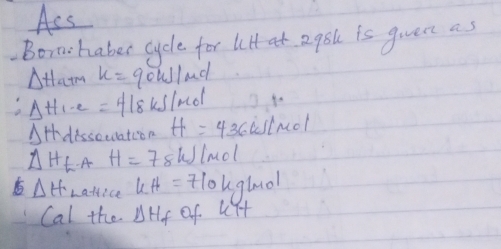 Ass
Born-haber cycle for KH at 298k is given as
ΔHatm K = 90kJ/mol
ΔHi-e = 418kJ/mol
ΔHdissociation H = 436kJ/mol
ΔHEA H = 78kJ/mol
ΔHLattice KH = 710kgmol
Cal the ΔHf of KH